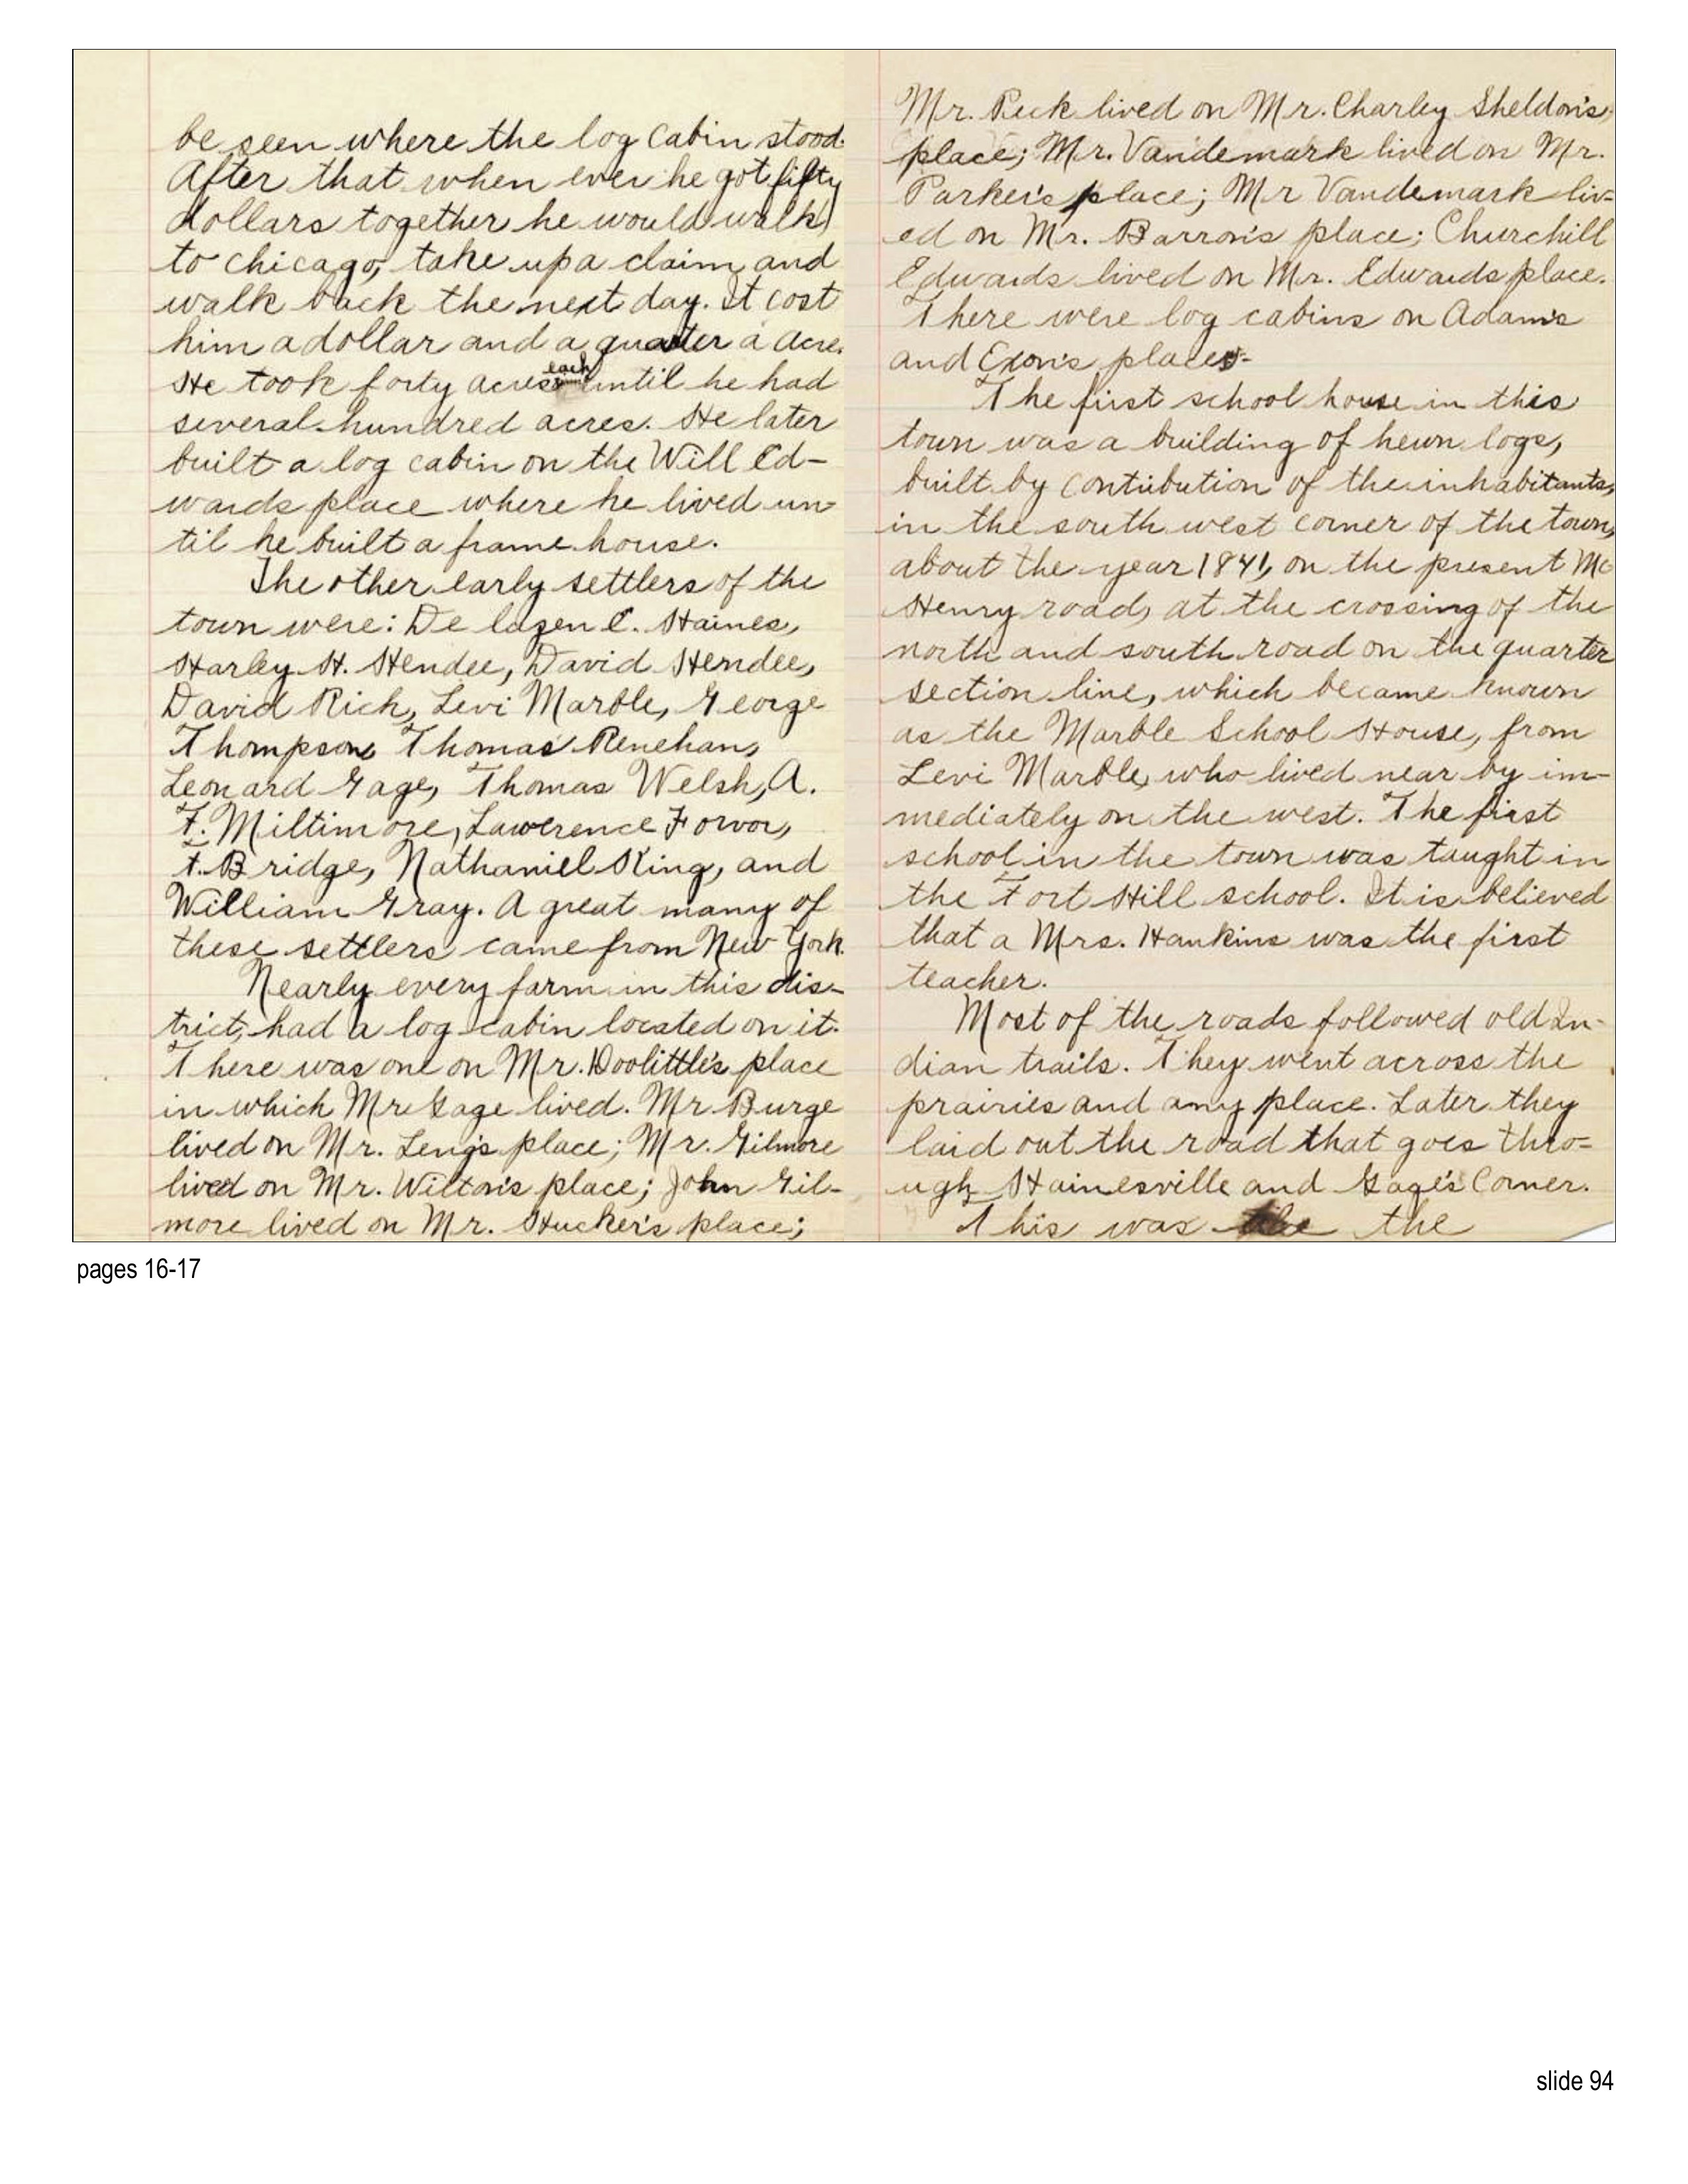 be seen where the log cabin stood.
After that when ever he got fifty
dollars together he would walk
to Chicago, take up a claim and
walk back the next day. It cost
him a dollar and a quater a acre.
each
He took forty acres until he had
several hundred acres. He later
built a log cabin on the Will Ed-
wards place where he lived un-
til he built a frame house.
The other early settlers of the
town were: De lazen E. Haines,
Harley H. Hendee, David Hendee,
David Rich, Levi Marble, George
Thompson, Thomas Renehan,
Leonard Gage, Thomas Welsh, A.
F. Miltimore, Lawerence Forvor,
t. Bridge, Nathaniel King, and
William Gray. A great many of
these settlers came from New York.
Nearly every farm in this dis-
trict, had a log cabin located on it.
There was one on Mr. Doolittle's place
in which Mr Gage lived. Mr Burge
lived on Mr. Leng's place; Mr. Gilmore
lived on Mr. Wilton's place; John Gil-
more lived on Mr. Hucker's place;
Mr. Peck lived on Mr. Charley Sheldon's,
place; Mr. Vandemark lived on Mr.
Parker's place; Mr Vandemark liv-
ed on Mr. Barron's place; Churchill
Edwards lived on Mr. Edwards place.
There were log cabins on Adam's
and Exon's places.
The first school house in this
town was a building of hewn logs,
built by contribution of the inhabitants,
in the south west corner of the town,
about the year 1841, on the present Mc
Henry road, at the crossing of the
north and south road on the quarter
section line, which became known
as the Marble School House, from
Levi Marble, who lived near by im-
mediately on the west. The first
school in the town was taught in
the Fort Hill school. It is believed
that a Mrs. Hankins was the first
teacher.
Most of the roads followed old In-
dian trails. They went across the
prairies and any place. Later they
laid out the road that goes thro-
ugh Hainesville and Gage's Corner.
This was the the
pages 16-17
slide 94